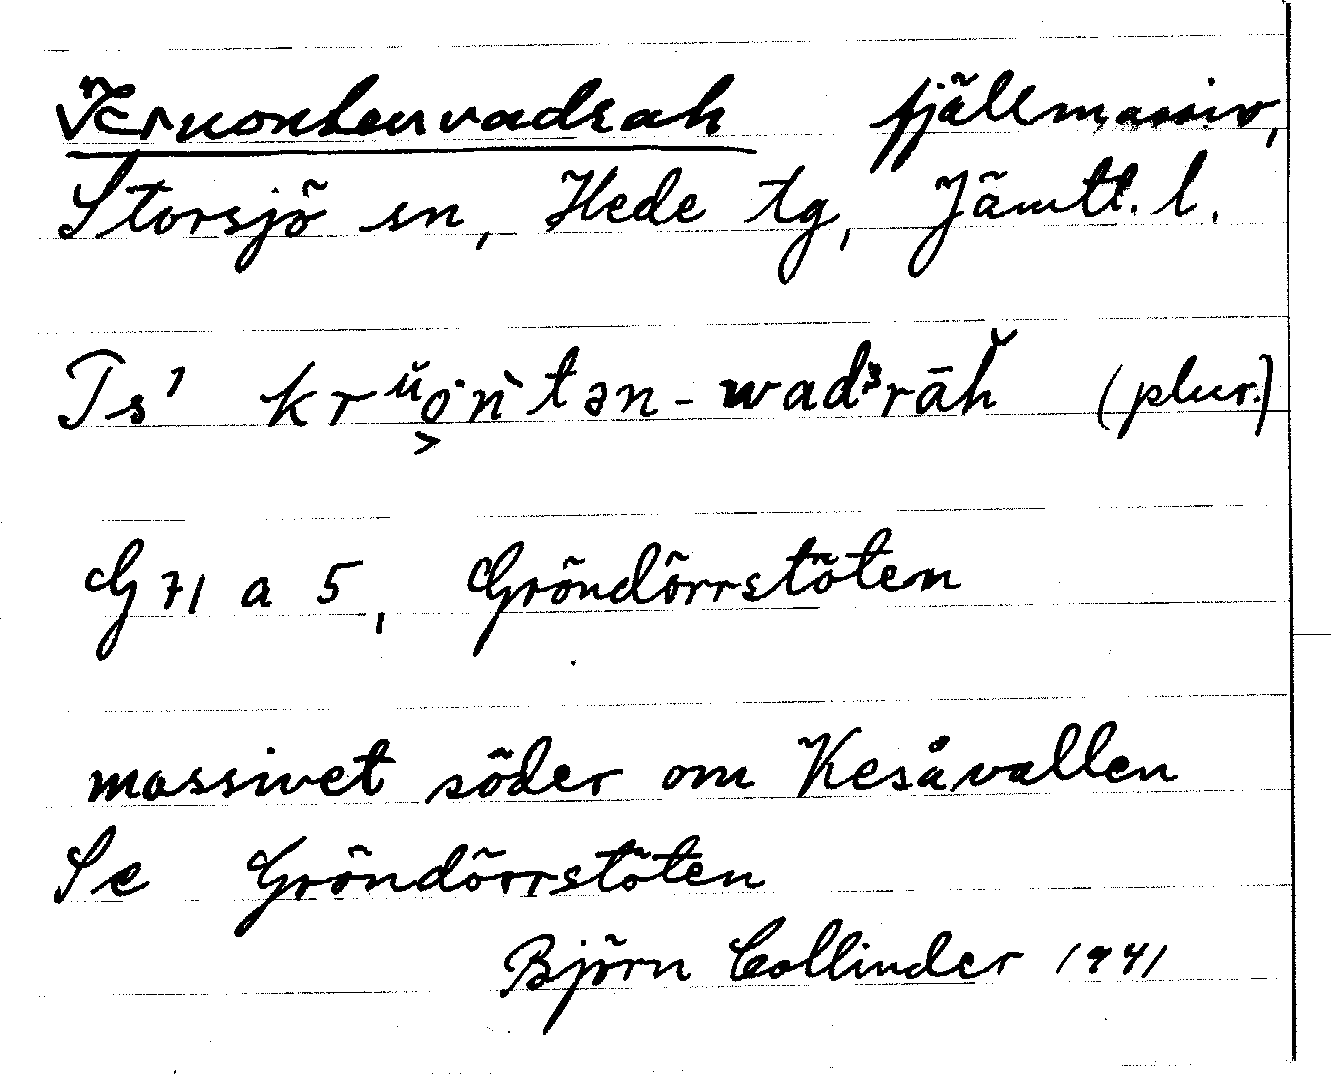 Kruontenvadrah fjällmassiv,
Storsjö sn, Hede tg, Jämtl. l.
Ts' krŭo̭ǹtən-wadᵊrāh̆ (plur.)
G 71 a 5, Gröndörrstöten
massivet söder om Kesåvallen
Se Gröndörrstöten
Björn Collinder 1941